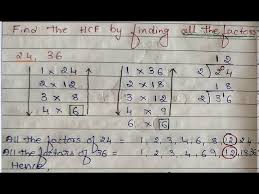 Find the HCF by finding all the factors
24, 36
1 x 24
2 x 12
3 x 8
4 x 6
1 x 36
2 x 18
3 x 12
4 x 9
6 x 6
12
2 24
18
2 36
All the factors of 24 = 1, 2, 3, 4, 6, 8, 12, 24
All the factors of 36 = 1, 2, 3, 4, 6, 9, 12, 18
Hence,